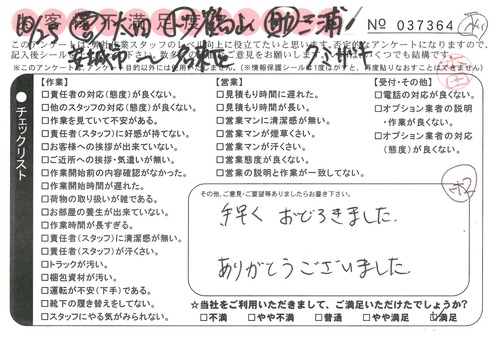 お客様不満足度
№ 037364
このアンケートは、弊社作業スタッフのレベル向上に役立てたいと思います。否定的なアンケートになりますので、
※このアンケートは、アンケート目的以外には使用しません。
チェックリスト
【作業】
□責任者の対応(態度)が良くない。
□他のスタッフの対応(態度)が良くない。
□作業を見ていて不安がある。
□責任者(スタッフ)に好感が持てない。
□お客様への挨拶が出来ていない。
□ご近所への挨拶・気遣いが無い。
□作業開始前の内容確認がなかった。
□作業開始時間が遅れた。
□荷物の取り扱いが雑である。
□お部屋の養生が出来ていない。
□作業時間が長すぎる。
□責任者(スタッフ)に清潔感が無い。
□責任者(スタッフ)が汗くさい。
□トラックが汚い。
□梱包資材が汚い。
□運転が不安(下手)である。
□靴下の履き替えをしてない。
□スタッフにやる気がみられない。
【営業】
□見積もり時間に遅れた。
□見積もり時間が長い。
□営業マンに清潔感が無い。
□営業マンが煙草くさい。
□営業マンが汗くさい。
□営業態度が良くない。
□営業の説明と作業が一致してない。
【受付・その他】
□電話の対応が良くない。
□オプション業者の説明
・作業が良くない。
□オプション業者の対応
(態度)が良くない。
その他、ご意見・ご要望等ありましたらお書き下さい。
手早く おどろきました
ありがとうございました
☆当社をご利用いただきまして、ご満足いただけたでしょうか?
□不満 □やや不満 □普通 □やや満足 □満足